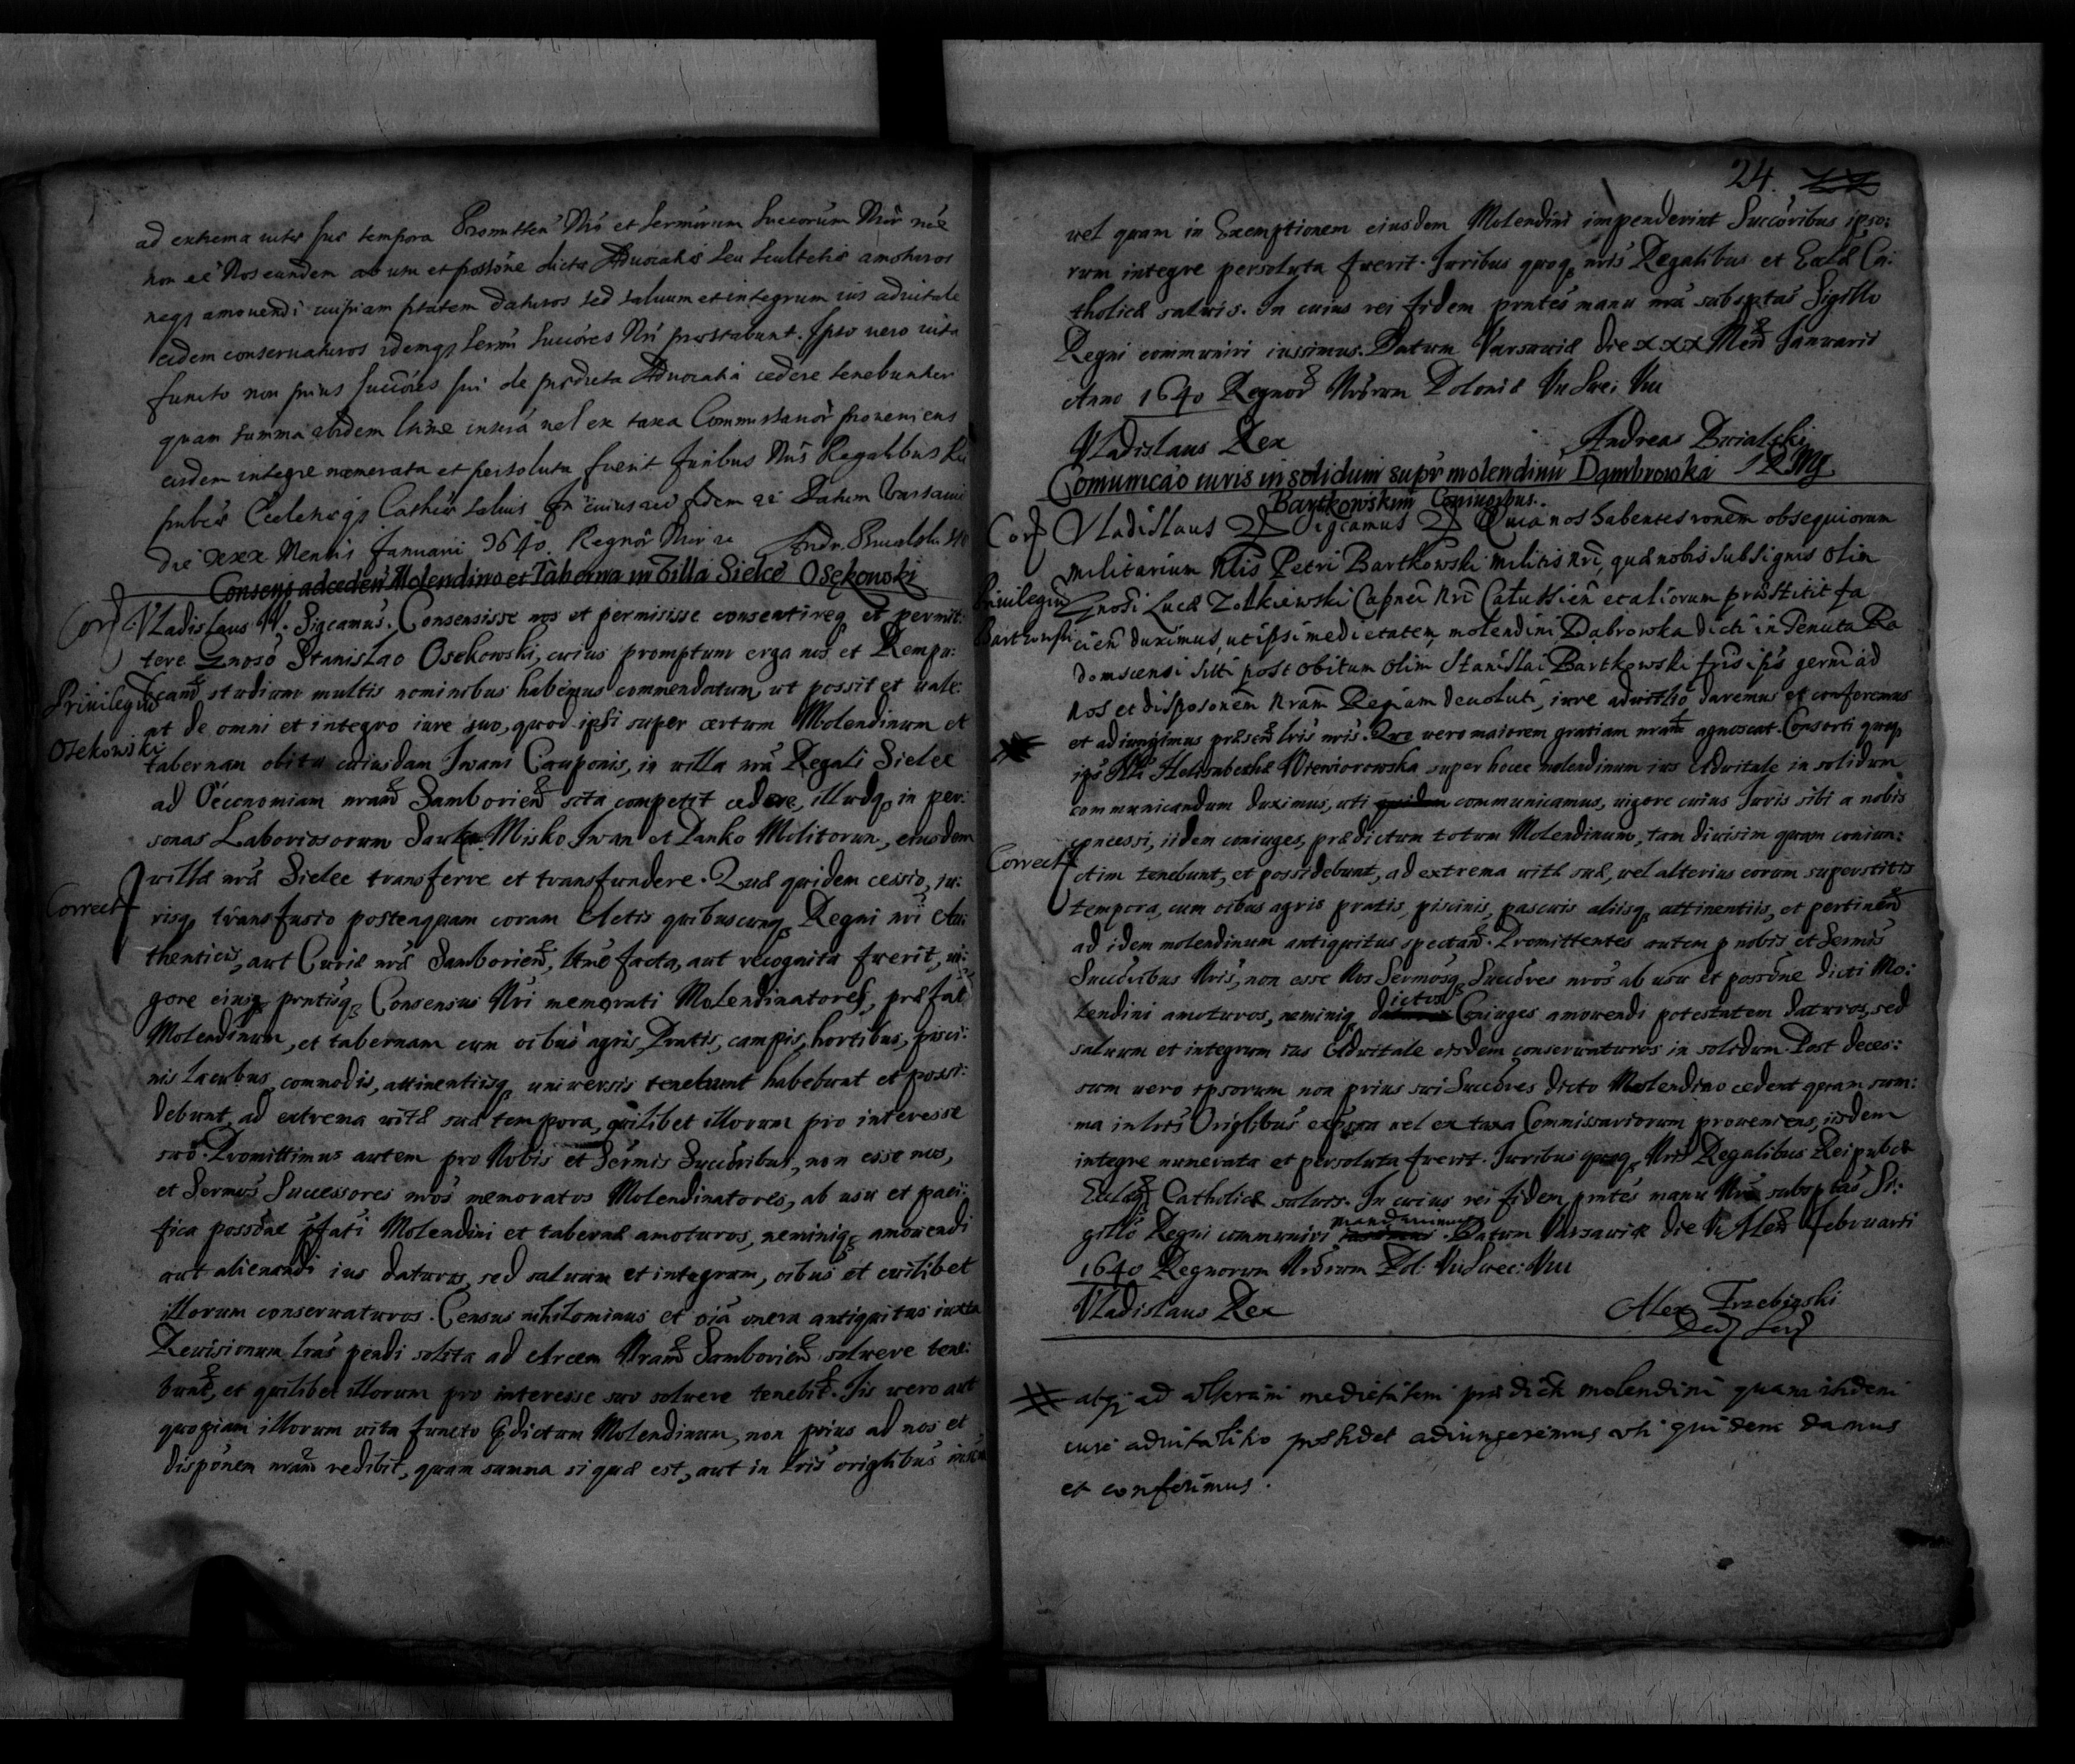 ad extrema vitæ suæ tempora Promitten Nři et Sermorum Succorum Nror nře
non eē Nos eundem ab usu et possōne dictæ Advocatiæ seu Scultetiæ amoturos
neq amouendi cuipiam ptātem daturos sed saluum et integrum ius aduitale
eidem conseruaturos idemq Sermi Succōres Nři præstabunt. Ipso uero uita
functo non prius Succōres sui de prædicta Aduocatia cedere tenebuntur
quam summa ibidem
eisdem integre numerata et persoluta fuerit Juribus Nřis Regalibus Rei
publicæ Ecclesiæq Catholicæ saluis In cuius rei fidem Datum Varsauiæ
die xxx Mensis Januarii 1640. Regnor Nror
Consens ad ceden Molendino et Taberna in Villa Sielce Osękowski
Corr Vladislaus IV. Sigcamus. Consensisse nos et permisisse consentireq et permit:
tere Gnoso Stanislao Osekowski, cuius promptum erga nos et Rempu:
Priuilegiu blcam studium multis nominibus habemus commendatum, ut possit et uale:
at de omni et integro iure suo, quod ipsi super certum Molendinum et
Osekowski tabernam obitu cuiusdam Iwani Cauponis, in villa nřa Regali Sielce
ad Oeconomiam nram Samborien sita competit cedere, illudq in per:
sonas Laboriosorum Misko Iwan et Danko Molitorum, eiusdem
villæ nřæ Sielce transferre et transfundere. Quæ quidem cessio, iu:
Correct risq transfusio posteaquam coram Actis quibuscunq Regni nři Au:
thenticis, aut Curiæ nřæ Samborien, facta, aut recognita fuerit, ui:
gore eiusq prntisq Consensus Nři memorati Molendinatores, præfat
Molendinum, et tabernam cum oibus agris, Pratis, campis, hortibus, pisci:
nis lacubus, commodis, attinentiisq uniuersis tenebunt habebunt et possi:
debunt, ad extrema vitæ suæ tempora, quilibet illorum pro interesse
suo. Promittimus autem pro Nobis et Sermis Succōribus, non esse nos,
et Sermos Successores nřos memoratos Molendinatores, ab usu et paci:
fica possōne pfati Molendini et tabernæ amoturos, neminiq amouendi
aut alienandi ius daturos, sed saluum et integrum, oibus et cuilibet
illorum conseruaturos. Census nihilominus et oia onera antiquitus iuxta
Reuisionum lras pendi solita ad Arcem Nram Samborien soluere tene:
bunt, et quilibet illorum pro interesse suo soluere tenebit. Iis uero aut
quopiam illorum uita functo pdictum Molendinum, non prius ad nos et
dispōnem nram redibit, quam summa si quæ est, aut in lris origlibus
24.
vel quam in Exemptionem eiusdem Molendini impenderint Succoribus ipso:
rum integre persoluta fuerit. Juribus quoq nris Regalibus et Ecclæ Ca:
tholicæ saluis. In cuius rei fidem prntes manu nra subsptas Sigillo
Regni communiri iussimus. Datum Varsauiæ die xxx Men Januarii
Anno 1640 Regnor Nrorum Poloniæ VII Swe: VIII
Vladislaus Rex Andreas
Comunicao iuris in solidum supr molendinu Dąmbrowska
Bartkowskim Coniugibus.
Corr Vladislaus Sigcamus Quia nos habentes ronem obsequiorum
militarium Nlis Petri Bartkowski militis nri, quæ nobis sub signis olim
Priuilegiu Gnosi Lucæ Zolkiewski Capnei nri Calussien et aliorum præstitit fa
Bartkowski cien duximus, ut ipsi medietatem molendini Dąbrowka dicti in Tenuta Ra
domscensi siti post obitum olim Stanislai Bartkowski fris ips germ ad
nos et disposonem nram Regiam deuoluti, iure aduitlio, daremus et conferemus
et adiungimus præsen lris nris. Quo vero maiorem gratiam nram agnoscat. Consorti quoq
ips Nli Helisabethæ Wiewiorowska super hocce molendinum ius Aduitale in solidum
communicandum duximus, uti quidem communicamus, uigore cuius Iuris sibi a nobis
concessi, iidem coniuges, prædictum totum Molendinum, tam diuisim quam coniun:
Correct ctim tenebunt, et possidebunt, ad extrema vitæ suæ, vel alterius eorum superstitis
tempora, cum oibus agris pratis, piscinis, pascuis aliisq attinentiis, et pertinen
ad idem molendinum antiquitus spectan. Promittentes autem p nobis et Sermis
Succoribus Nris, non esse Nos Sermosq Succores nros ab usu et possone dicti Mo:
lendini amoturos, neminiq dictos Coniuges amouendi potestatem daturos, sed
saluum et integrum ius Aduitale eisdem conseruaturos in solidum. Post deces:
sum uero ipsorum non prius sui Succores dicto Molendino cedent quam sum:
ma in lris Origlibus expssa uel ex taxa Commissariorum proueniens, iisdem
integre numerata et persoluta fuerit. Iuribus quoq Nris Regalibus Reipubcæ
Ecclæq Catholicæ saluis. In cuius rei fidem prntes manu Nra subsptas Si:
gillo Regni communiri mandauimus. Datum Varsauiæ die VI Men februarii
1640 Regnorum Nrorum Pol: VII Swec: VIII
Vladislaus Rex Alex Trzebiński
atq ad alteram medietatem prædicti molendini quam itidem
iure aduitalitio possidet adiungeremus uti quidem damus
et conferimus.